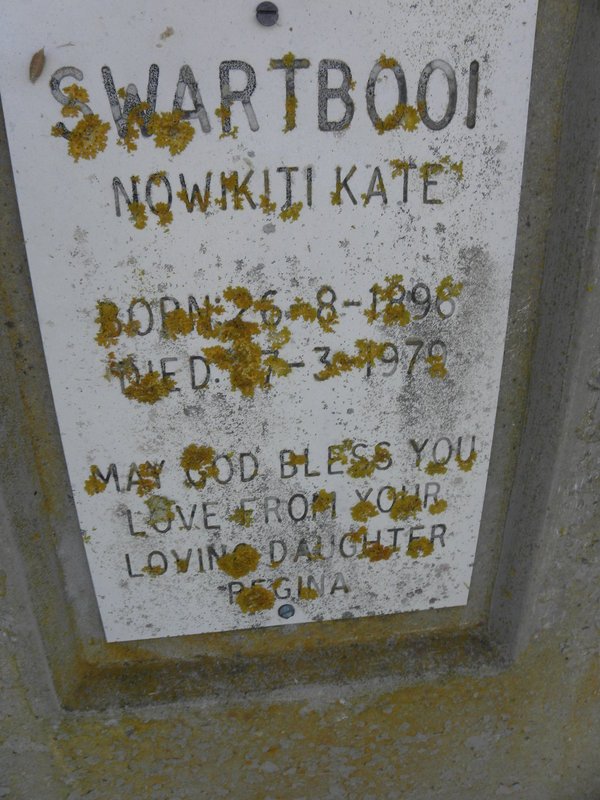 SWARTBOOI
NOWIKITI KATE
BORN: 26-8-1896
DIED: -3-1979
MAY GOD BLESS YOU
LOVE FROM YOUR
LOVING DAUGHTER
REGINA